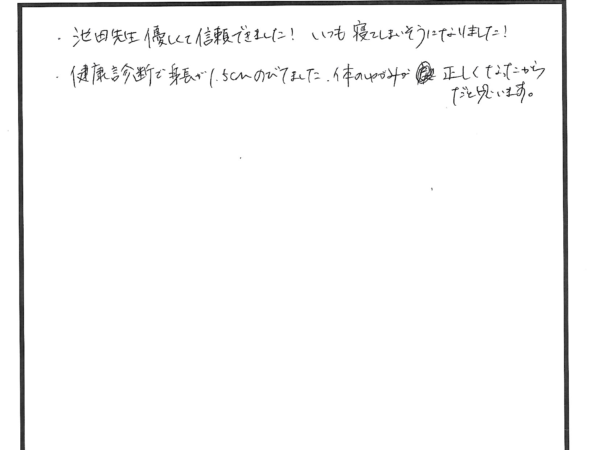 ・池田先生優しくて信頼できました！ いつも寝てしまいそうになりました！
・健康診断で身長が1.5cmのびてました。体のゆがみが 正しくなったから
だと思います。